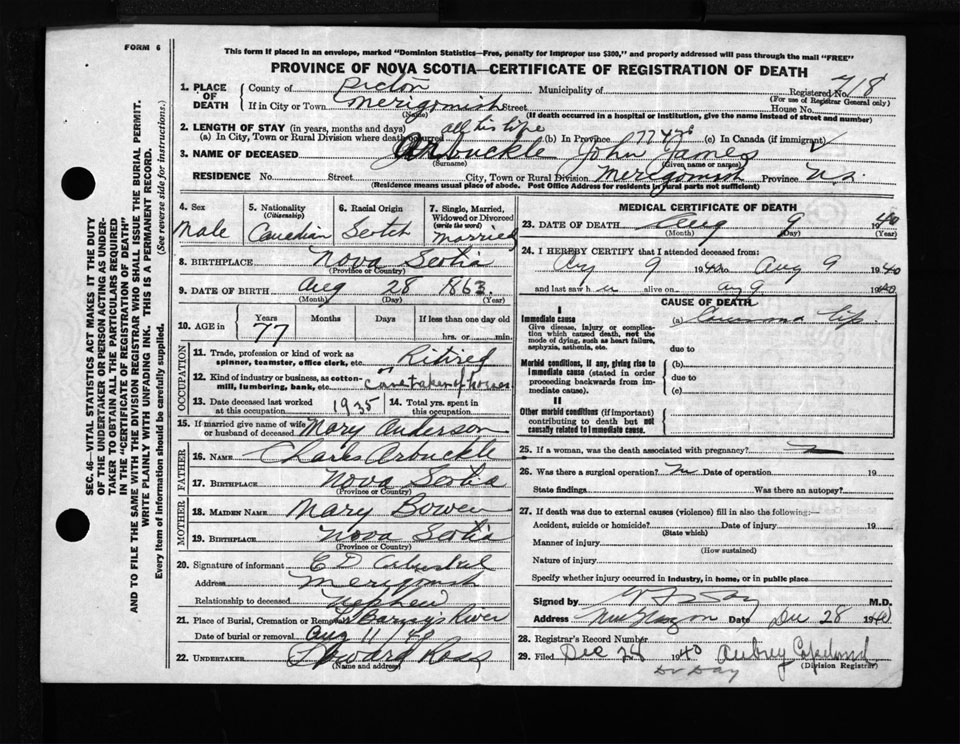 FORM 6
This form if placed in an envelope, marked "Dominion Statistics—Free, penalty for improper use $300," and properly addressed will pass through the mail "FREE"
PROVINCE OF NOVA SCOTIA—CERTIFICATE OF REGISTRATION OF DEATH
SEC. 46—VITAL STATISTICS ACT MAKES IT THE DUTY
OF THE UNDERTAKER OR PERSON ACTING AS UNDER-
TAKER TO OBTAIN ALL THE PARTICULARS REQUIRED
IN THE "CERTIFICATE OF REGISTRATION OF DEATH"
AND TO FILE THE SAME WITH THE DIVISION REGISTRAR WHO SHALL ISSUE THE BURIAL PERMIT.
WRITE PLAINLY WITH UNFADING INK. THIS IS A PERMANENT RECORD.
Every item of information should be carefully supplied. (See reverse side for instructions.)
1. PLACE OF DEATH County of Pictou Municipality of Registered No. 718
(For use of Registrar General only)
If in City or Town Merigomish Street House No.
(Name) (If death occurred in a hospital or institution, give the name instead of street and number)
2. LENGTH OF STAY (in years, months and days)
(a) In City, Town or Rural Division where death occurred all his life (b) In Province (c) In Canada (if immigrant)
3. NAME OF DECEASED Arbuckle John James
(Surname) (Given name or names)
RESIDENCE No. Street City, Town or Rural Division Merigomish Province N.S.
(Residence means usual place of abode. Post Office Address for residents in rural parts not sufficient)
4. Sex Male
5. Nationality (Citizenship) Canadian
6. Racial Origin Scotch
7. Single, Married, Widowed or Divorced (write the word) Married
8. BIRTHPLACE Nova Scotia
(Province or Country)
9. DATE OF BIRTH Aug 28 1863
(Month) (Day) (Year)
10. AGE IN Years 77 Months Days If less than one day old hrs. or min.
OCCUPATION
11. Trade, profession or kind of work as spinner, teamster, office clerk, etc. Retired
12. Kind of industry or business, as cotton-mill, lumbering, bank, etc. Caretaker of horses
13. Date deceased last worked at this occupation 1935
14. Total yrs. spent in this occupation
15. If married give name of wife or husband of deceased Mary Anderson
FATHER
16. NAME Charles Arbuckle
17. BIRTHPLACE Nova Scotia
(Province or Country)
MOTHER
18. MAIDEN NAME Mary Bowen
19. BIRTHPLACE Nova Scotia
(Province or Country)
20. Signature of informant E D
Address Merigomish
Relationship to deceased Nephew
21. Place of Burial, Cremation or Removal Barny's River
Date of burial or removal Aug 11/40
22. UNDERTAKER Howard Ross
(Name and address)
MEDICAL CERTIFICATE OF DEATH
23. DATE OF DEATH Aug 9 1940
(Month) (Day) (Year)
24. I HEREBY CERTIFY that I attended deceased from:
Aug 9 1940 to Aug 9 1940
and last saw h alive on Aug 9 1940
CAUSE OF DEATH
I
Immediate cause
Give disease, injury or complication which caused death, not the mode of dying, such as heart failure, asphyxia, asthenia, etc.
(a) lip
due to
Morbid conditions, if any, giving rise to immediate cause (stated in order proceeding backwards from immediate cause).
(b)
due to
(c)
II
Other morbid conditions (if important) contributing to death but not causally related to immediate cause.
25. If a woman, was the death associated with pregnancy?
26. Was there a surgical operation? No Date of operation 19
State findings Was there an autopsy?
27. If death was due to external causes (violence) fill in also the following:—
Accident, suicide or homicide? Date of injury 19
(State which)
Manner of injury
(How sustained)
Nature of injury
Specify whether injury occurred in industry, in home, or in public place
Signed by Day M.D.
Address New Glasgow Date Dec 28 1940
28. Registrar's Record Number
29. Filed Dec 28 1940 Aubrey Copeland
(Division Registrar)
Dr Day